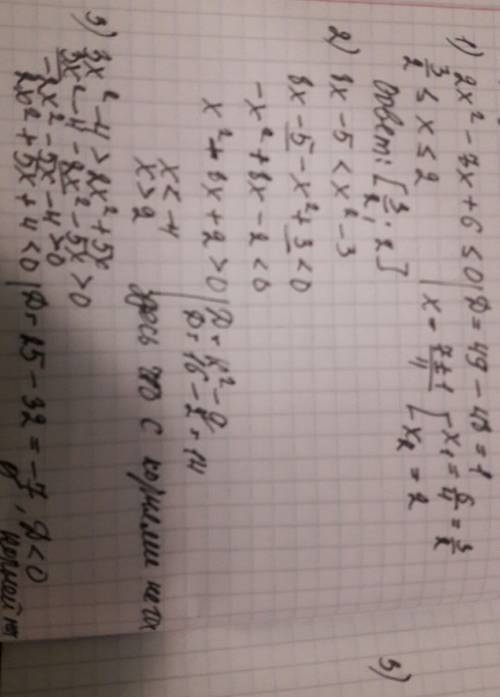 1) 2x² - 7x + 6 ≤ 0 | D = 49 - 48 = 1
3/2 ≤ x ≤ 2 | x = 7±1/4 [ x₁ = 6/4 = 3/2
x₂ = 2
Ответ: [3/2; 2]
2) 8x - 5 < x² - 3
8x - 5 - x² + 3 < 0
-x² + 8x - 2 < 0
x² + 8x + 2 > 0 | D =
D = 16 - 2 = 14
x < -4
x > 2
здесь что с корнями
3) 3x² - 4 > 2x² + 5x
3x² - 4 - 2x² - 5x > 0
-2x² - 5x - 4 > 0
2x² + 5x + 4 < 0 | D = 25 - 32 = -7, D < 0
корней нет
3)